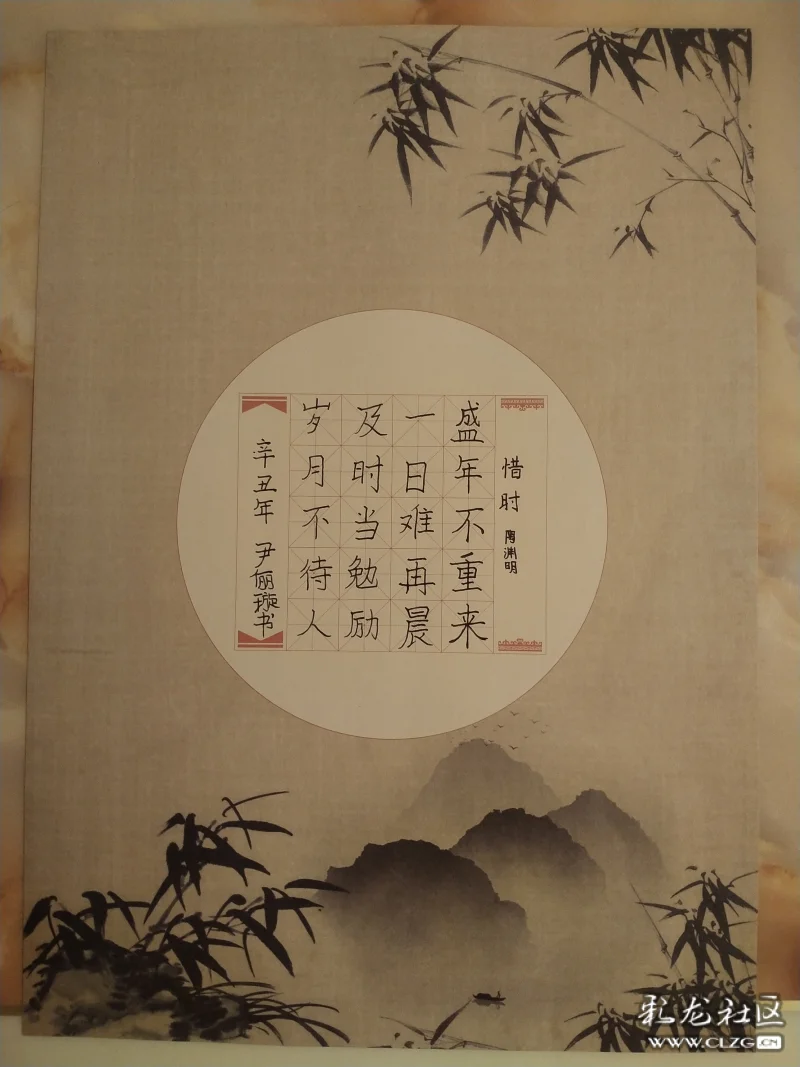 惜时 陶渊明
盛年不重来
一日难再晨
及时当勉励
岁月不待人
辛丑年 尹俪璇书
彩龙社区
www.CLZG.CN